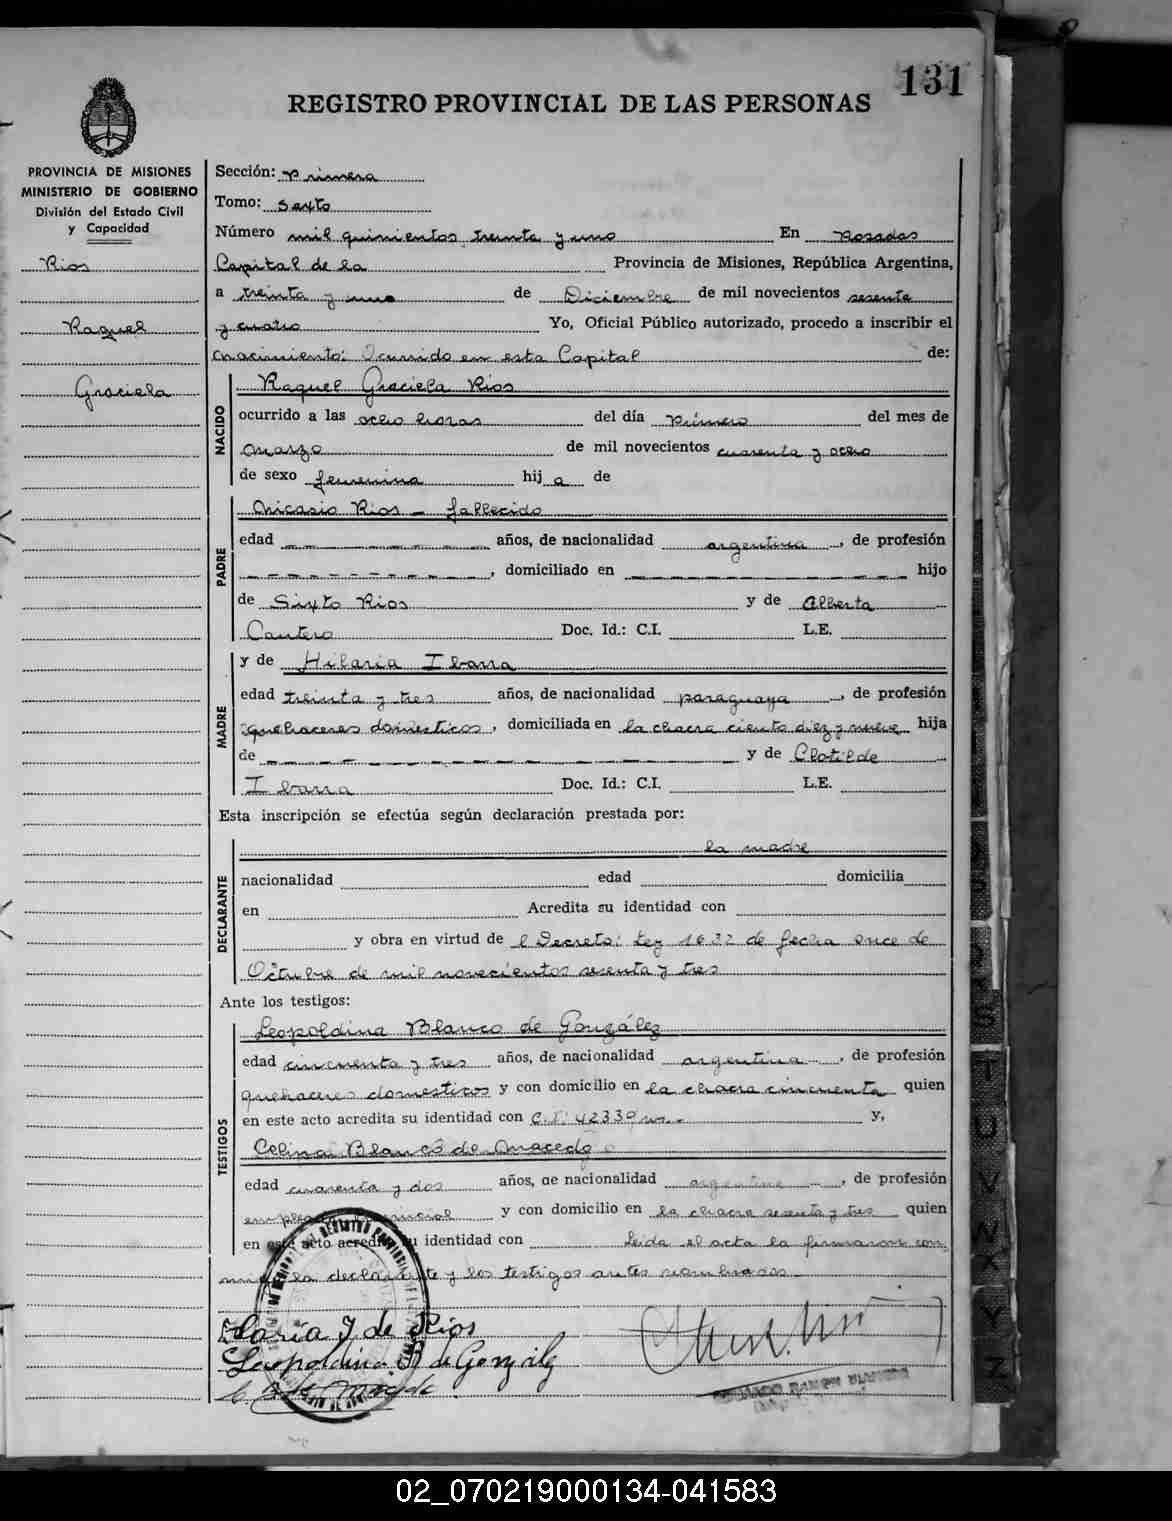 131
REGISTRO PROVINCIAL DE LAS PERSONAS
PROVINCIA DE MISIONES
MINISTERIO DE GOBIERNO
División del Estado Civil
y Capacidad
Rios
Raquel
Graciela
Sección: Primera
Tomo: Sexto
Número mil quinientos treinta y uno En Posadas
Capital de la Provincia de Misiones, República Argentina,
a treinta y uno de Diciembre de mil novecientos sesenta
y cuatro Yo, Oficial Público autorizado, procedo a inscribir el
nacimiento: Ocurrido en esta Capital de:
NACIDO
Raquel Graciela Rios
ocurrido a las ocho horas del día primero del mes de
Marzo de mil novecientos cuarenta y ocho
de sexo femenina hij a de
PADRE
Nicasio Rios - fallecido
edad años, de nacionalidad argentina, de profesión
, domiciliado en hijo
de Sixto Rios y de Alberta
Cantero Doc. Id.: C.I. L.E.
MADRE
y de Hilaria Ibarra
edad treinta y tres años, de nacionalidad paraguaya, de profesión
quehaceres domésticos, domiciliada en la chacra ciento diez y nueve hija
de y de Clotilde
Ibarra Doc. Id.: C.I. L.E.
Esta inscripción se efectúa según declaración prestada por:
DECLARANTE
la madre
nacionalidad edad domicilia
en Acredita su identidad con
y obra en virtud de l Decreto: Ley 1632 de fecha once de
Octubre de mil novecientos sesenta y tres
Ante los testigos:
TESTIGOS
Leopoldina Blanco de González
edad cincuenta y tres años, de nacionalidad argentina, de profesión
quehaceres domesticos y con domicilio en la chacra cincuenta quien
en este acto acredita su identidad con C.I. 42339 y,
Celina Blanco de Macedo
edad cuarenta y dos años, de nacionalidad argentina, de profesión
y con domicilio en la chacra sesenta y tres quien
en este acto acredita su identidad con Leida el acta la firmaron con
la declarante y los testigos antes nombrados
Ilaria I de Rios
Leopoldina B de González
S
T
U
V
W
X
Y
Z
02_070219000134-041583